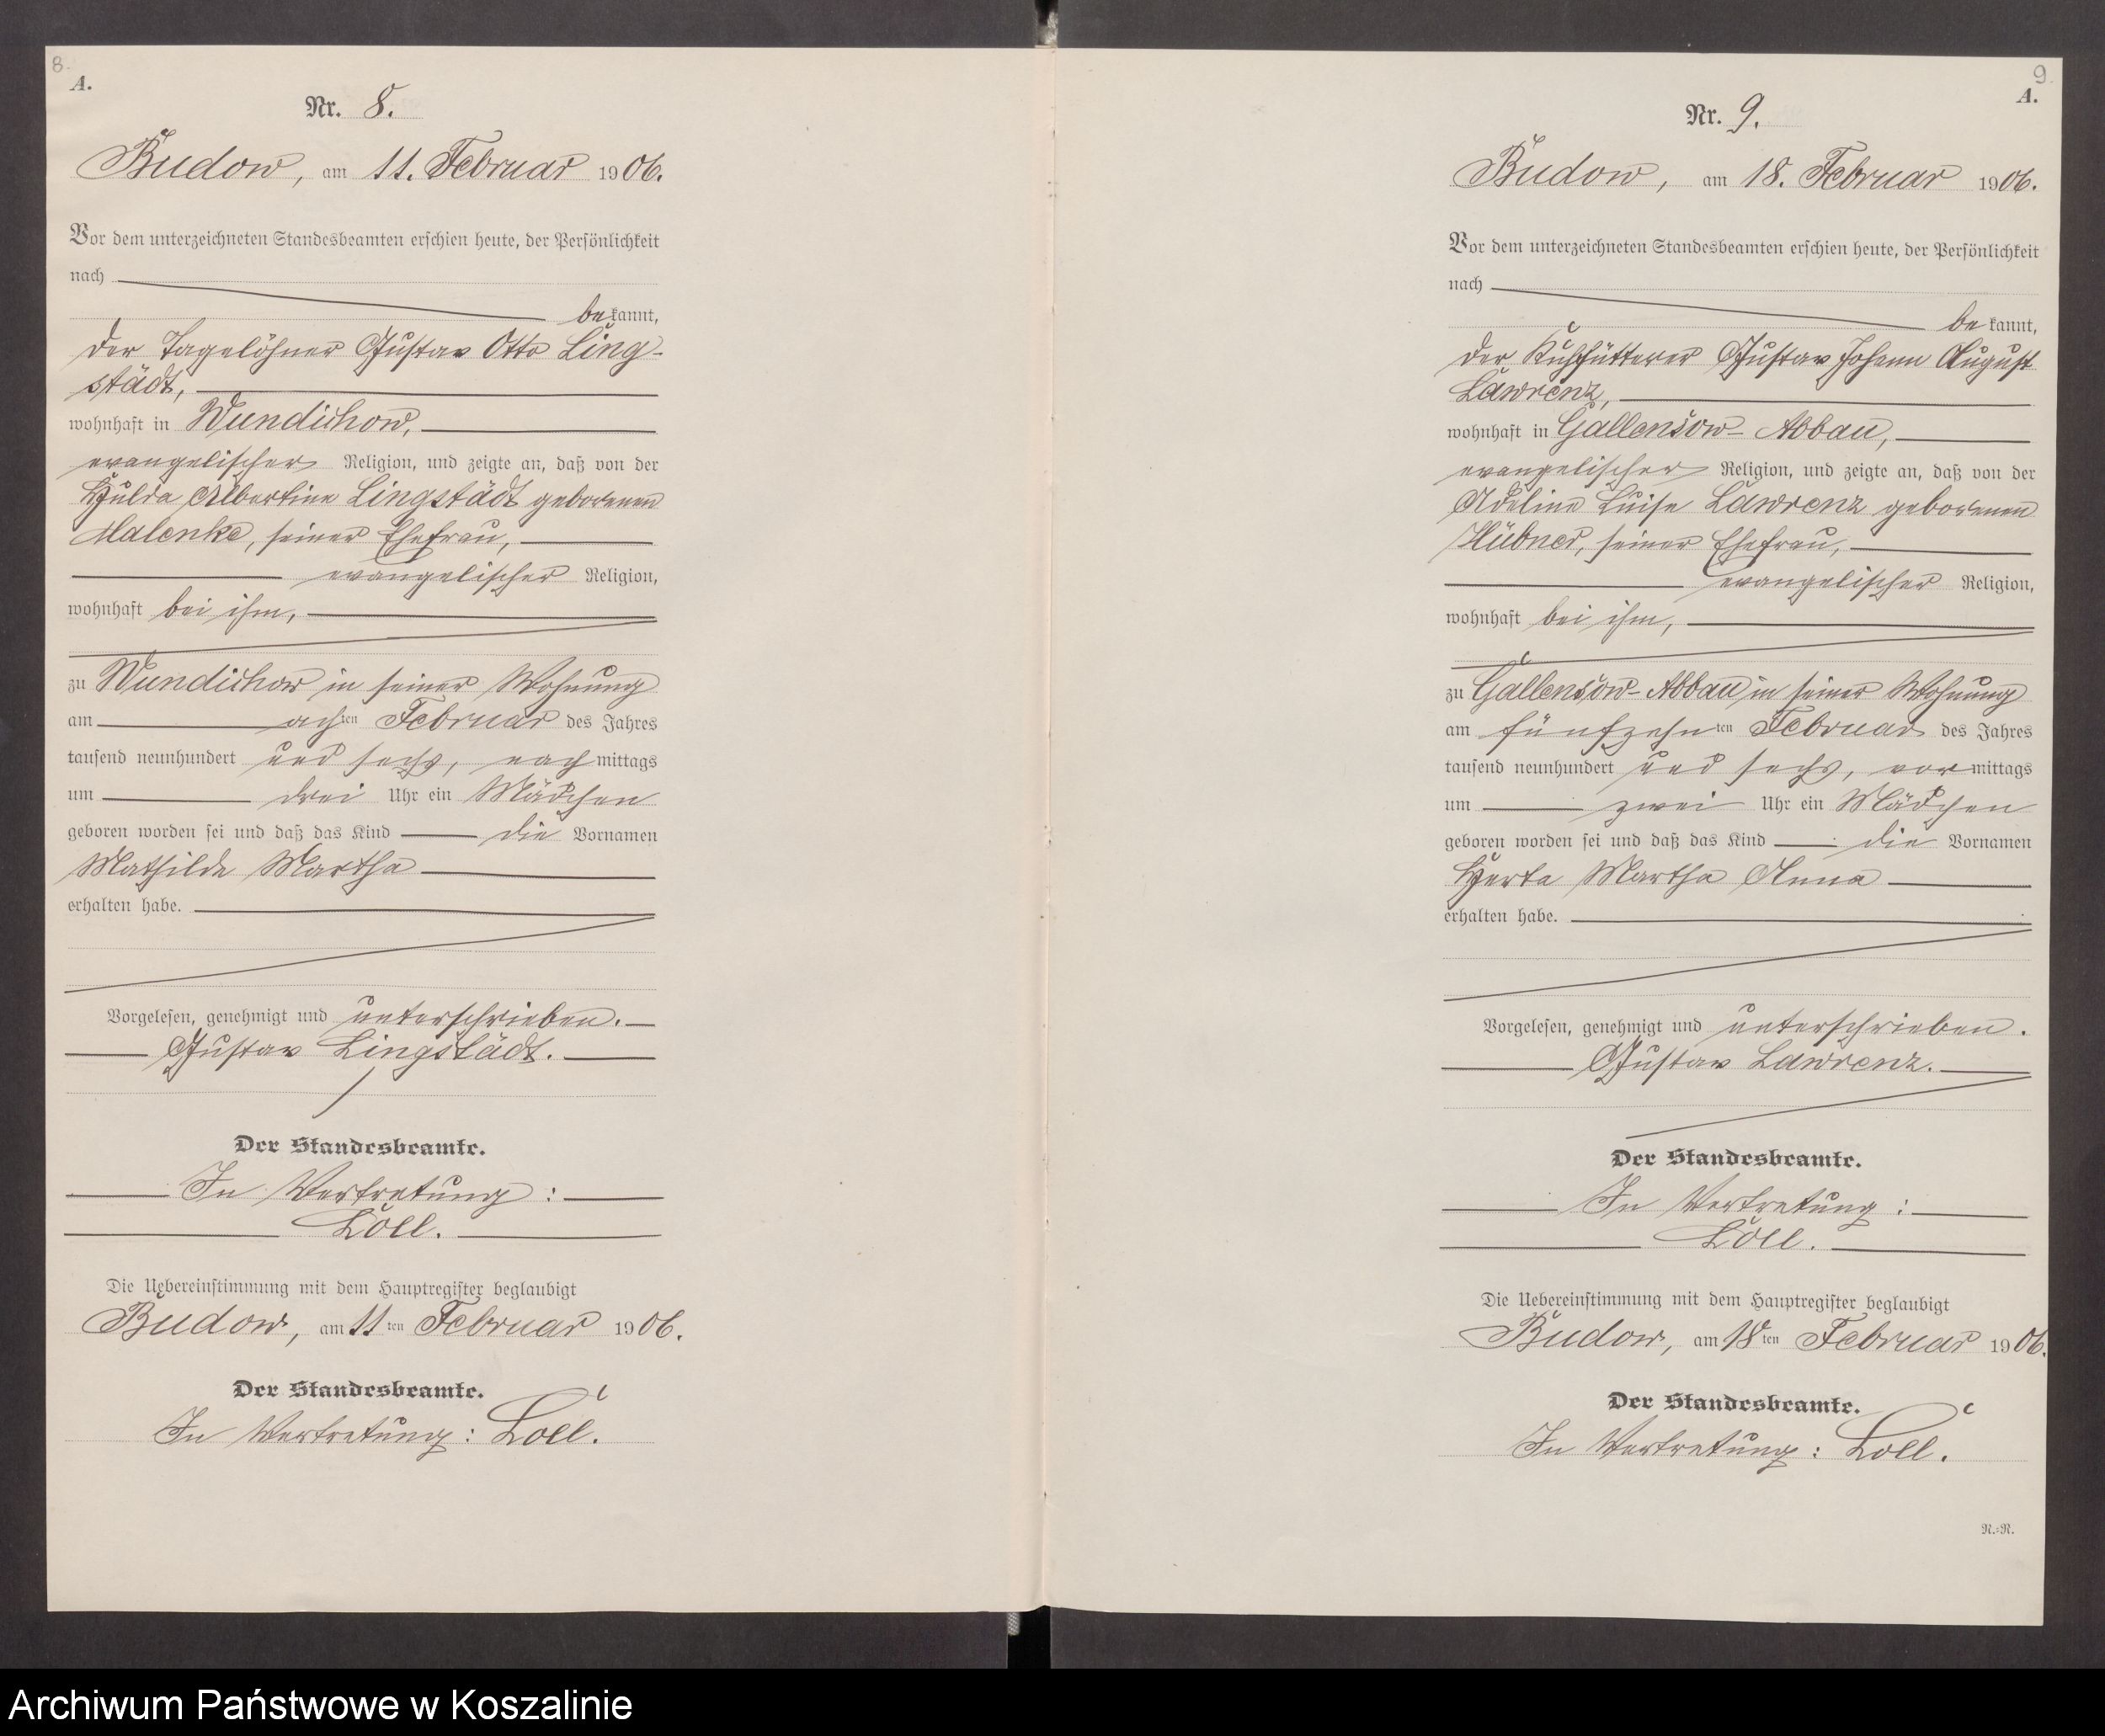 8.
A.
Nr. 8.
Budow, am 11. Februar 1906.
Vor dem unterzeichneten Standesbeamten erschien heute, der Persönlichkeit
nach
bekannt,
der Tagelöhner Gustav Otto Ling-
städt,
wohnhaft in Wundichow,
evangelischer Religion, und zeigte an, daß von der
Hulda Albertine Lingstädt geborenen
Malenke, seiner Ehefrau,
evangelischer Religion,
wohnhaft bei ihm,
zu Wundichow in seiner Wohnung
am achten Februar des Jahres
tausend neunhundert und sechs, nachmittags
um drei Uhr ein Mädchen
geboren worden sei und daß das Kind die Vornamen
Mathilde Martha
erhalten habe.
Vorgelesen, genehmigt und unterschrieben.
Gustav Lingstädt.
Der Standesbeamte.
In Vertretung:
Loll.
Die Uebereinstimmung mit dem Hauptregister beglaubigt
Budow, am 11ten Februar 1906.
Der Standesbeamte.
In Vertretung: Loll.
9.
A.
Nr. 9.
Budow, am 18. Februar 1906.
Vor dem unterzeichneten Standesbeamten erschien heute, der Persönlichkeit
nach
bekannt,
der Kuhfütterer Gustav Johann August
Lawrenz,
wohnhaft in Gallensow-Abbau,
evangelischer Religion, und zeigte an, daß von der
Adeline Luise Lawrenz geborenen
Hübner, seiner Ehefrau,
evangelischer Religion,
wohnhaft bei ihm,
zu Gallensow-Abbau in seiner Wohnung
am fünfzehnten Februar des Jahres
tausend neunhundert und sechs, vormittags
um zwei Uhr ein Mädchen
geboren worden sei und daß das Kind die Vornamen
Herta Martha Anna
erhalten habe.
Vorgelesen, genehmigt und unterschrieben.
Gustav Lawrenz.
Der Standesbeamte.
In Vertretung:
Loll.
Die Uebereinstimmung mit dem Hauptregister beglaubigt
Budow, am 18ten Februar 1906.
Der Standesbeamte.
In Vertretung: Loll.
N.=R.
Archiwum Państwowe w Koszalinie